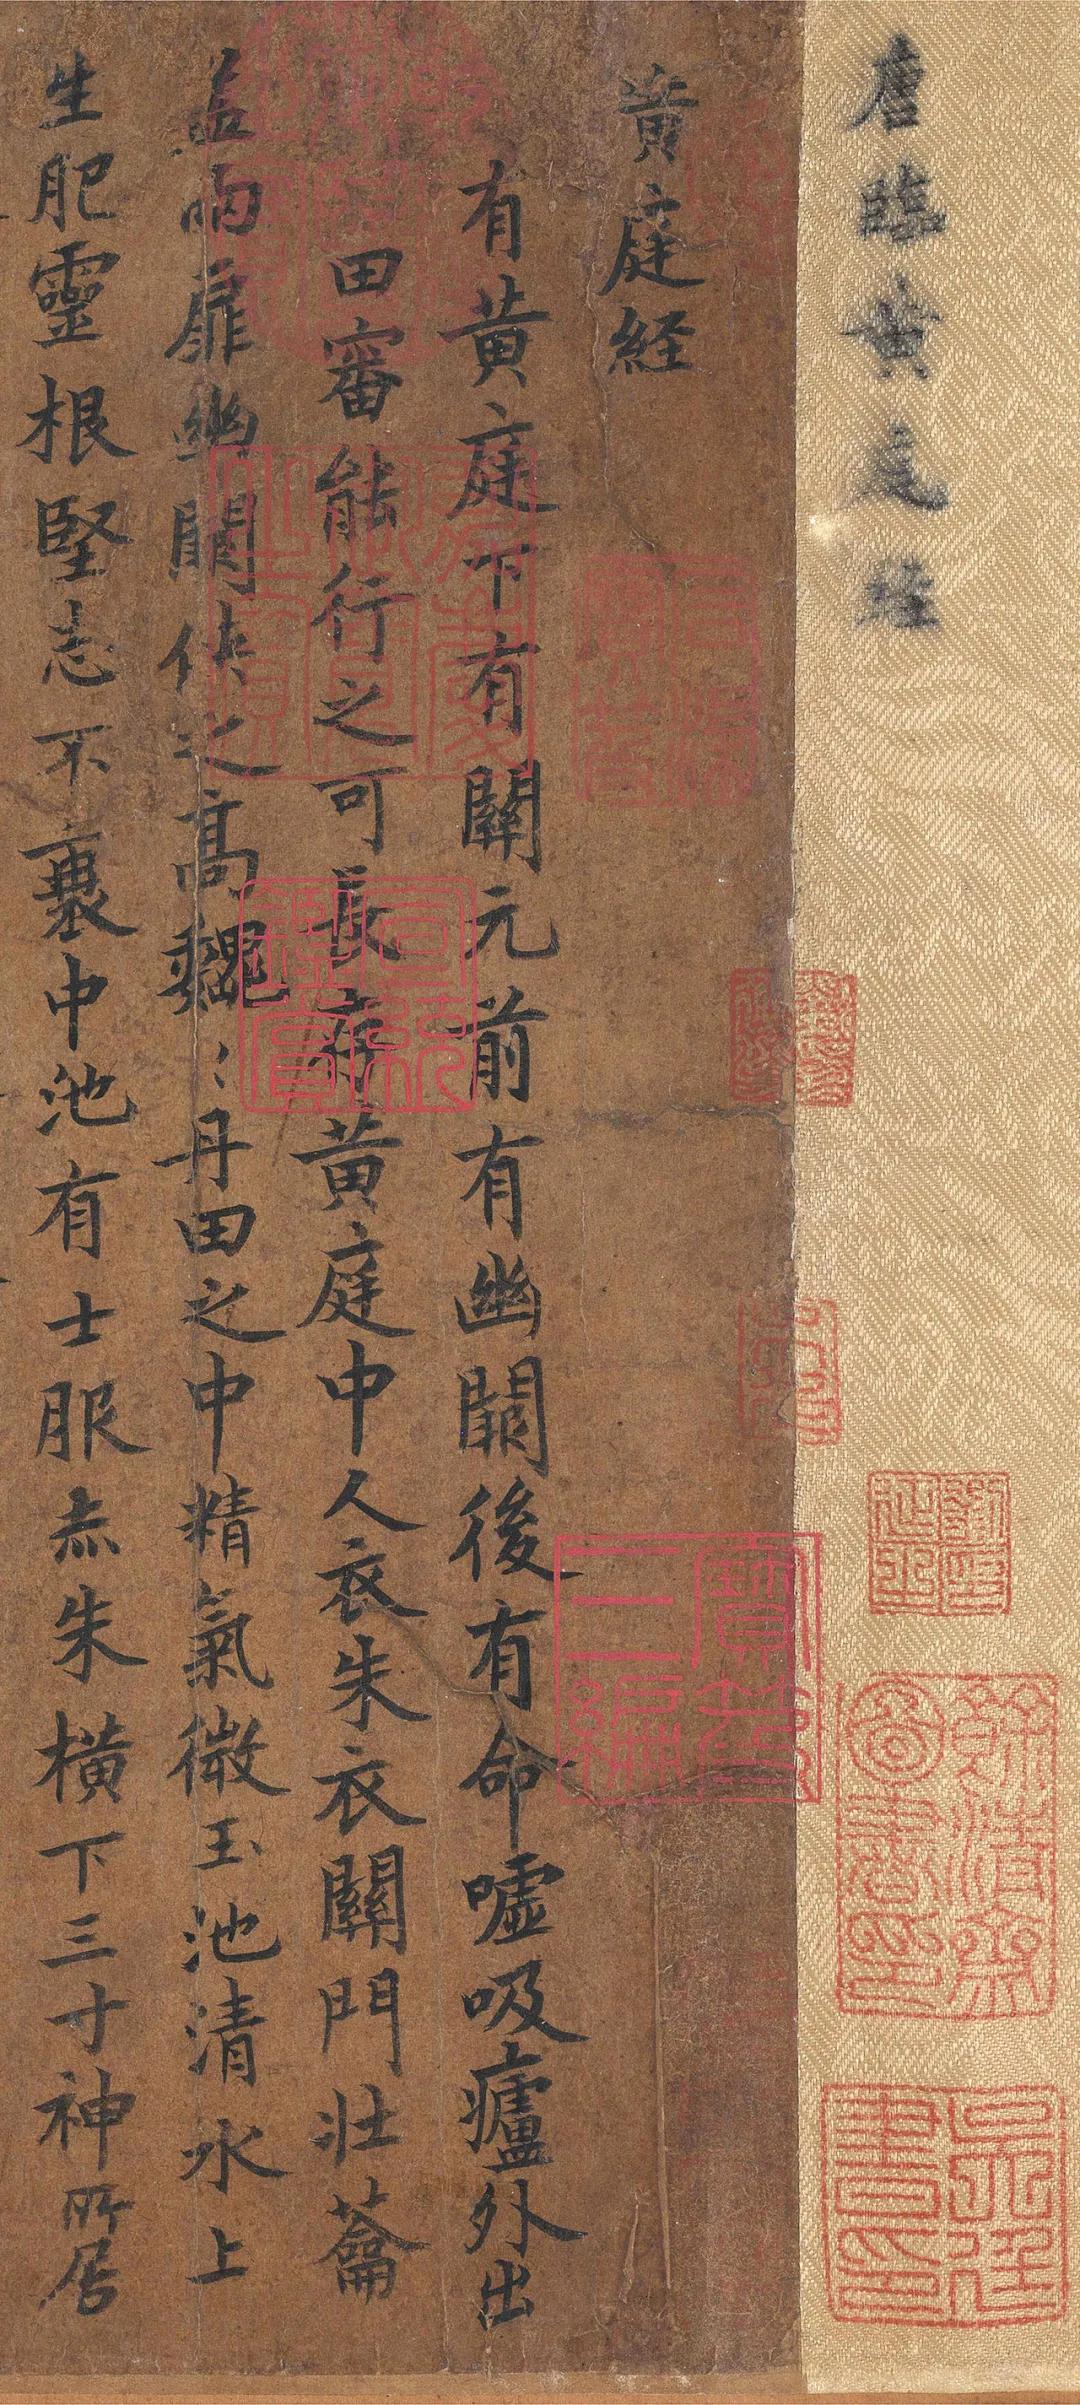 唐臨黃庭經
黃庭経
有黃庭下有關元前有幽闕後有命噓吸廬外出
田審能行之可長存黃庭中人衣朱衣關門壯蘥
盖兩扉幽闕俠之高巍〻丹田之中精氣微玉池清水上
生肥靈根堅志不衰中池有士服赤朱橫下三寸神所居
宣統鑒賞
寶笈三編
餘清齋圖書印